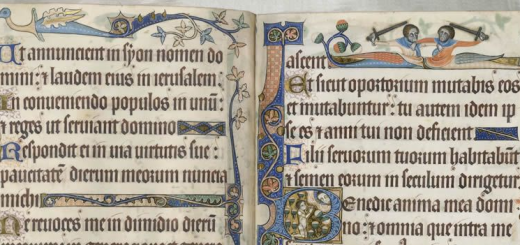 Ut annuncient in syon nomen do
mini: ⁊ laudem eius in ierusalem:
In conueniendo populos in unū:
⁊ reges ut seruiant domino
Respondit ei in uia uirtutis sue:
paucitatē dierum meorum nuncia
michi
Ne reuoces me in dimidio dierū
ascent
Et sicut opertorium mutabis eos
⁊ mutabuntur: tu autem idem ip
se es ⁊ anni tui non deficient
Filii seruorum tuorum habitabūt
⁊ semen eorum in seculum dirigetur
Benedic anima mea domi
no: ⁊ omnia que intra me